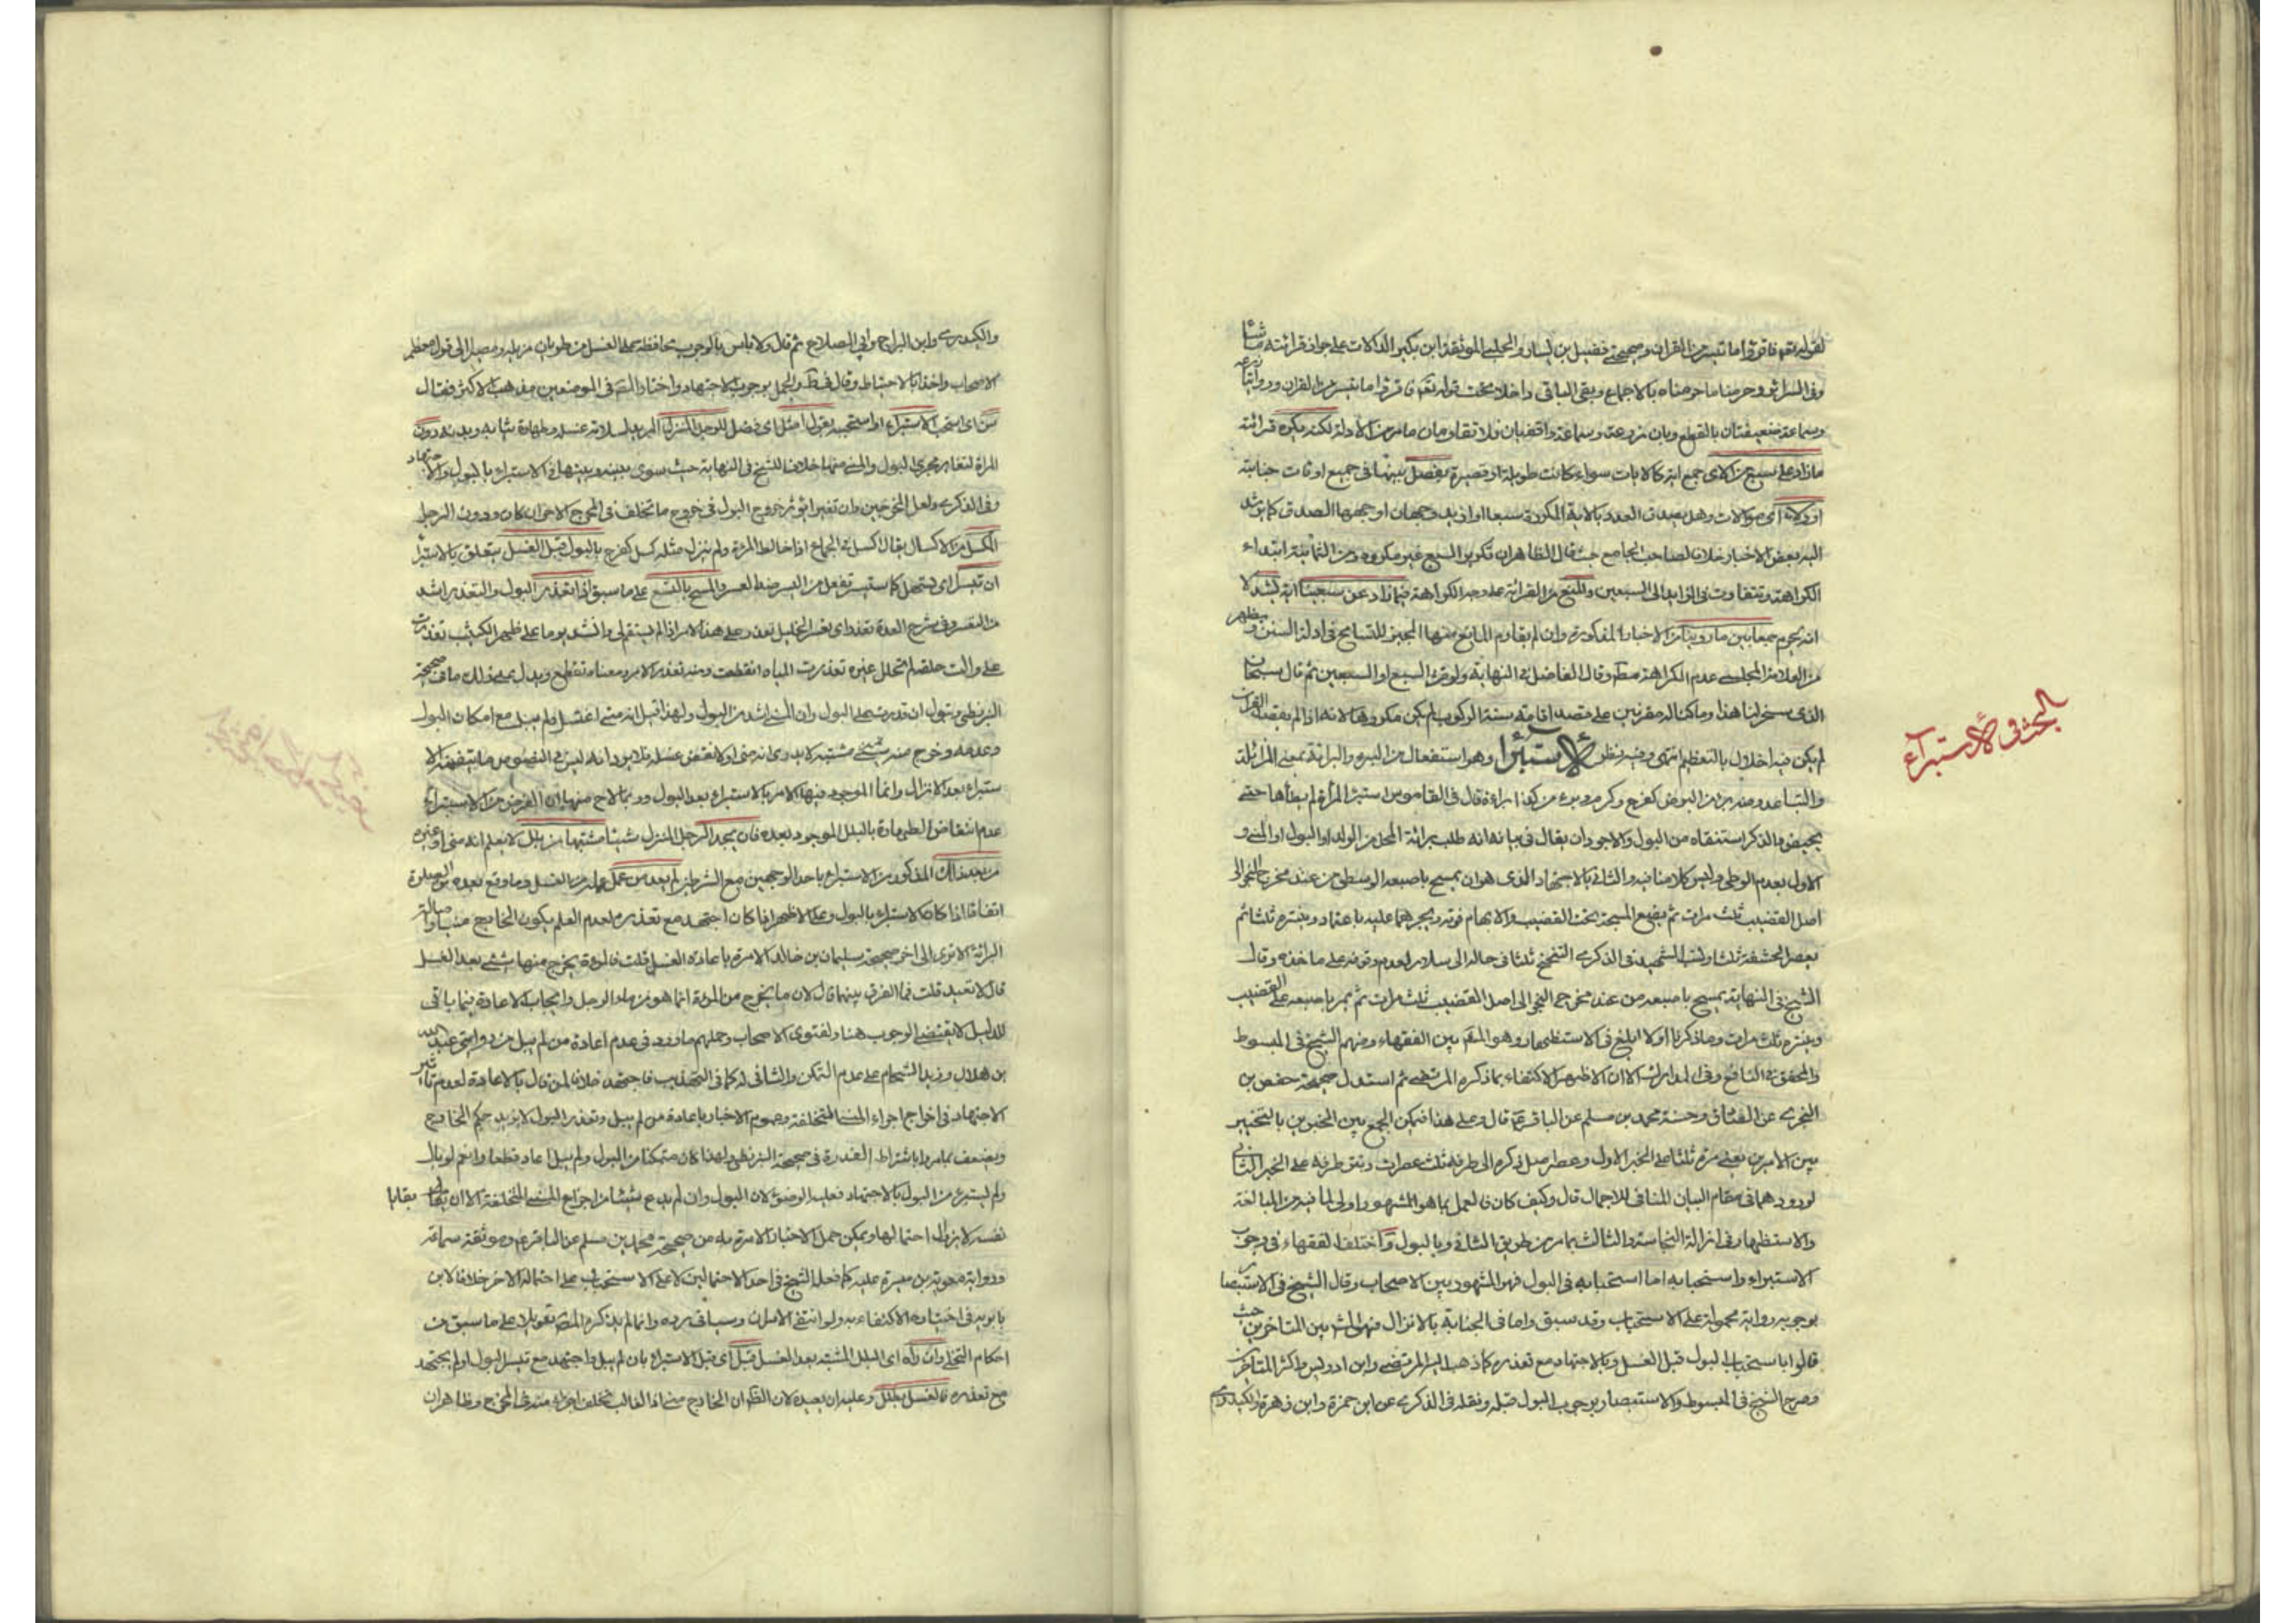 لقوله تعم فاقرؤا ما تيسر من القران وصحيحتي فضيل بن يسار والحلبي الموثقة ابن بكير الدالات على جواز قرائته ما شاء
وفي السرائر وحرمنا ما حرمناه بالاجماع وبقي الباقي داخلا تحت قوله تعم فاقرؤا ما تيسر من القران وروايتا زرعة
وسماعة ضعيفتان بالقطع وبان زرعة وسماعة واقفيان فلا تقاومان ما مر من الادلة لكنه يكره قرائة
ما زاد على سبع من الاي جمع اية كالايات سواء كانت طويلة او قصيرة يفصل بينها في جميع اوقات جنابته
او ولاء اي موالات وهل يصدق العدد بالاية المكررة سبعا او ازيد وجهان اوجههما الصدق كما يرشد
اليه بعض الاخبار خلافا لصاحب الجامع حيث قال الظاهر ان تكرير السبع غير مكروه ومن الثمانية ابتداء
الكراهة وتتفاوت في الزايد الى السبعين والمنع من القرائة على وجه الكراهة فيما زاد عن سبعين اية يشد لا
انه يحرم جمعا بين ما روينا من الاخبار المذكورة وان لم يقاوم المانع منها المجيز للتسامح في ادلة السنن ويظهر
من العلامة المجلسي عدم الكراهة مط وقال الفاضل في النهاية ولو قرء السبع او السبعين ثم قال سبحان
الذي سخر لنا هذا وما كنا له مقرنين على قصد اقامة سنة الركوب لم يكن مكروها لانه اذا لم يقصد القران
لم يكن فيه اخلال بالتعظيم انتهى وفيه نظر الاستبراء وهو استفعال من البرء والبرائة بمعنى المزائلة
والتباعد ومنه برء من المرض كفرح وكرم وبرء من كذا براءة قال في القاموس استبرء المراة لم يطأها حتى
تحيض والذكر استنقاه من البول والاجود ان يقال في بيانه انه طلب برائة المحل من الولد او البول او المني و
الاول بعدم الوطي وليس كلامنا فيه والثاني بالاجتهاد الذي هو ان يمسح باصبعه الوسطى من عند مخرج النجو الى
اصل القضيب ثلث مرات ثم يضع المسبحة تحت القضيب والابهام فوقه ويمرهما عليه باعتماد وينتره ثلثا ثم
يعصر الحشفة ثلثا وليث الشهيد في الذكرى التنحنح ثلثا في حاله الى سلار لعدم وقوفه على ماخذه وقال
الشيخ في النهاية يمسح باصبعه من عند مخرج النجو الى اصل القضيب ثلث مرات ثم يمر باصبعه على القضيب
وينتره ثلث مرات وما ذكرنا اولا ابلغ في الاستظهار وهو المش بين الفقهاء ومنهم الشيخ في المبسوط
والمحقق في النافع وفي المدارك الا ان الاظهر الاكتفاء بما ذكره المرتضى ثم استدل صحيحة حفص بن
البختري عن الصادق وحسنة محمد بن مسلم عن الباقر ع قال وعلى هذا فيمكن الجمع بين الخبرين بالتخيير
بين الامرين يعني مرة ثلثا على الخبر الاول وعصر اصل ذكره الى طرفه ثلث عصرات ونتر طرفه على الخبر الثاني
لورودهما في مقام البيان المنافي للاجمال قال وكيف كان فالعمل بما هو المشهور اولى لما فيه من المبالغة
والاستظهار في ازالة النجاسة والثالث بما مر من طريق الثاني وبالبول واختلف الفقهاء في وجوب
الاستبراء واستحبابه اما استحبابه في البول فهو المشهور بين الاصحاب وقال الشيخ في الاستبصار
بوجوبه رواية محمولة على الاستحباب وقد سبق واما في الجنابة بالانزال فهو المش بين المتاخرين حيث
قالوا باستحباب البول قبل الغسل وبالاجتهاد مع تعذره كما ذهب اليه المرتضى وابن ادريس واكثر المتاخرين
وصرح الشيخ في المبسوط والاستبصار بوجوب البول قبله ونقله في الذكرى عن ابن حمزة وابن زهرة والكيدري
البحث في الاستبراء
والكيدري وابن البراج وابي الصلاح ثم قال ولا باس بالوجوب محافظة على الغسل من طريان مزيله ومصيرا الى قول معظم
الاصحاب واخذا بالاحتياط وقال في ط والجمل بوجوب الاجتهاد واختار المص في الموضعين مذهب الاكثر فقال
سن اي استحب الاستبراء او استحبه بقول امثل اي فضل للرجل المنزل المريد لسلامة غسله وطهارة ثيابه وبدنه دون
المراة لتغاير مجرى البول والمني منها خلافا للشيخ في النهاية حيث سوى بينه وبينها في الاستبراء بالبول والاجتهاد
وفي الذكرى ولعل المخرجين وان تغيرا يؤثر خروج البول في خروج ما تخلف في المخرج الاخر ان كان ودون الرجل
المكسل من الاكسال يقال كسل في الجماع اذا خالط المرئة ولم ينزل ومثله كسل كفرح بالبول قبل الغسل يتعلق بالاستبراء
ان تيسر اي تسهل كاستيسر تفعل من اليسر ضد العسر والمسح بالتسع على ما سبق اذا تعذر البول والتعذر اشد
من التعسر وفي شرح العدة تعذر اي تعسر الخليل تعذر على هذا الامر اذا لم يستقم لي وانشد يوما على ظهر الكثيب تعذرت
علي والت حلفة لم تحلل غيره تعذرت المياه انقطعت ومنه تعذر الامر ومعناه تقطع ويدل على ذلك ما في صحيحة
البزنطي وتبول ان قدرت على البول وان المني اشد من البول ولهذا قيل انه متى اغتسل ولم يبل مع امكان البول
وعدمه وخرج منه شيء مشتبه لا يدري انه مني او لا انتقض غسله فلا يرد انه ليس في النصوص ما يتضمن الا
ستبراء بعد الانزال وانما الموجود فيها الامر بالاستبراء بعد البول وربما لاح منها ان الغرض من الاستبراء
عدم انتقاض الطهارة بالبلل الموجود بعده فان يجد الرجل المنزل شيئا مشتبها من بلل لا يعلم انه مني او غيره
من بعد ذلك المذكور من الاستبراء باحد الوجهين مع الشرط لم يعد من عمل عمله من الغسل وما وقع بعده من الصلوة
اتفاقا اذا كان الاستبراء بالبول وعلى الاظهر اذا كان اجتهد مع تعذره لعدم العلم بكون الخارج منيا واصالة
البرائة الا ترى الى اخر صحيحة سليمان بن خالد الامرة باعادة الغسل قلت فالمرئة يخرج منها شيء بعد الغسل
قال لا تعيد قلت فما الفرق بينهما قال لان ما يخرج من المرئة انما هو من ماء الرجل وايجاب الاعادة فيما ياتي
للدليل لا يقتضي الوجوب هنا ولفتوى الاصحاب وحملهم ما ورد في عدم اعادة من لم يبل من روايتي عبد الله
بن هلال وزيد الشحام على عدم التمكن والشافي له كما في التهذيب فاجتهد خلافا لمن قال بالاعادة لعدم تاثير
الاجتهاد في اخراج اجزاء المني المتخلفة وعموم الاخبار باعادة من لم يبل وتعذر البول لا يزيد حكم الخارج
ويضعف بما مر وباشتراط القدرة في صحيحة البزنطي ولهذا كان متمكنا من البول ولم يبل اعاد قطعا وانعم لو بال
ولم يستبرء من البول بالاجتهاد فعليه الوضوء لان البول وان لم يدع شيئا من اجزاء المني المتخلفة الا ان بقايا
نفسه لا يزيل احتمالها ويمكن حمل الاخبار الامرة به من صحيحة محمد بن مسلم عن الباقر ع وموثقة سماعة
ورواية معوية بن ميسرة عليه كما فعله الشيخ في احد الاحتمالين لا على الاستحباب على احتماله الاخر خلافا لابن
بابويه في اختياره الاكتفاء به ولو انتفى الامران وسياتي رده وانما لم يذكره المص تعويلا على ما سبق من
احكام التخلي وان رآه اي البلل المشتبه بعد الغسل قبل اي قبل الاستبراء بان لم يبل واجتهد مع تيسر البول او لم يجتهد
مع تعذره فالغسل بطلل وعليه ان يعيده لان الظ ان الخارج مني اذ الغالب تخلف اجزاء منه في المخرج وظاهر ان